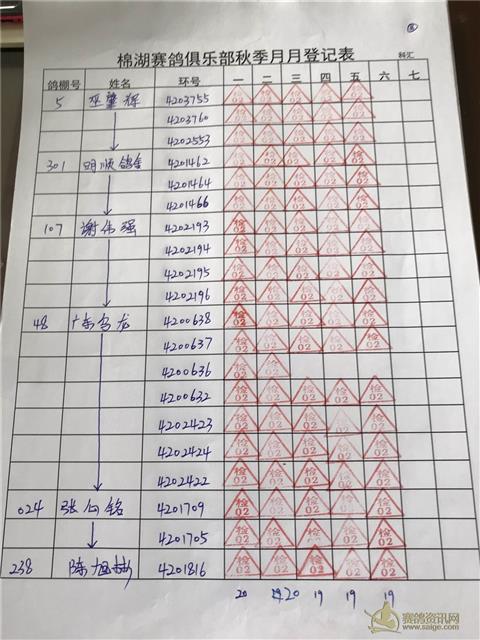 棉湖赛鸽俱乐部秋季月月登记表
科汇
鸽棚号 姓名 环号 一 二 三 四 五 六 七
5 巫肇辉 4203755 检02 检02 检02 检02 检02
4203760 检02 检02 检02 检02 检02
4202553 检02 检02 检02 检02 检02
301 明顺鸽舍 4201462 检02 检02 检02 检02 检02
4201464 检02 检02 检02 检02 检02
4201466 检02 检02 检02 检02 检02
107 谢伟强 4202193 检02 检02 检02 检02 检02
4202194 检02 检02 检02 检02 检02
4202195 检02 检02 检02 检02 检02
4202196 检02 检02 检02 检02 检02
48 广东乌龙 4200638 检02 检02 检02 检02 检02
4200637 检02 检02 检02 检02 检02
4200636 检02 检02
4200632 检02 检02 检02 检02 检02
4202423 检02 检02 检02 检02 检02
4202424 检02 检02 检02 检02 检02
4202422 检02 检02 检02 检02 检02
024 张 铭 4201709 检02 检02 检02 检02 检02
4201705 检02 检02 检02 检02 检02
238 陈旭彬 4201816 检02 检02 检02 检02 检02
20 20 19 19 19
赛鸽资讯网
www.saige.com